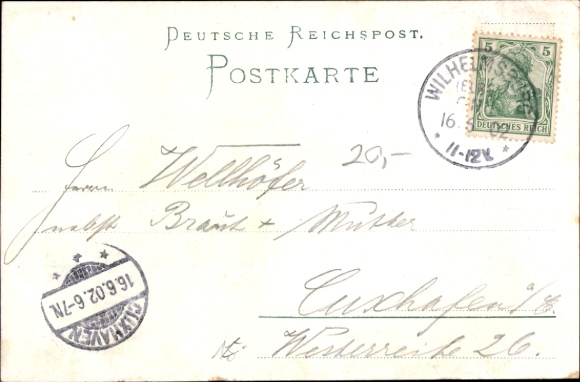 DEUTSCHE REICHSPOST.
POSTKARTE
5 5
DEUTSCHES REICH
WILHELMSBURG
16. 02.
* 11-12V. *
20,-
Herrn Wellhöfer
nebst Braut + Mutter
16.6.02.6-7N.
CUXHAVEN
Cuxhafen a/E.
Westerreihe 26.